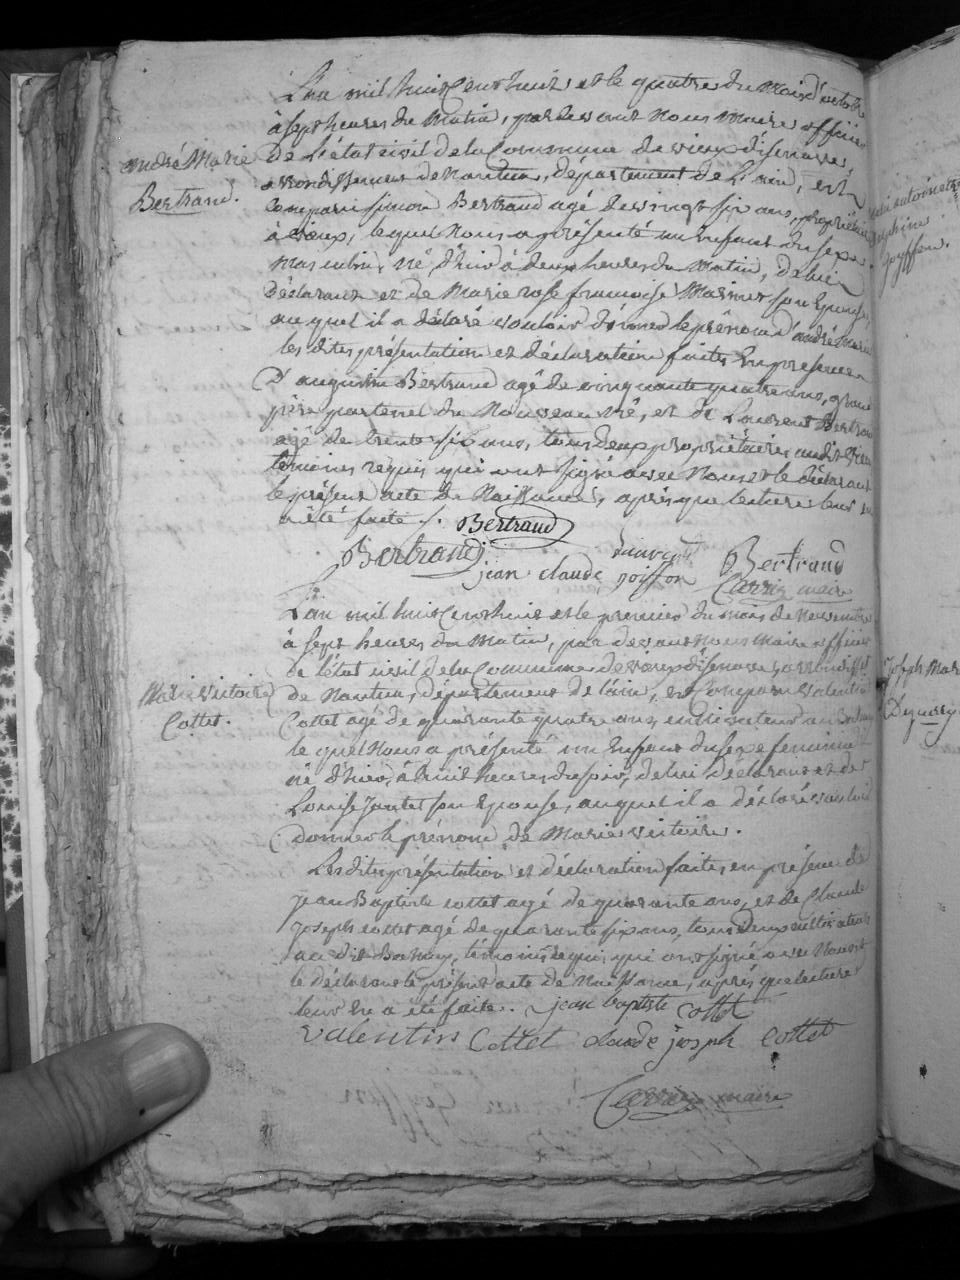 L'an mil huit cent huit et le quatre du mois d'octobre
à sept heures du matin, par devant nous maire officier
de l'état civil de la Commune de vieux d'isenave,
arrondissement de Nantua, département de L'ain, est
Comparu simon Bertrand agé de vingt six ans, propriétaire
à vieux, lequel nous a présenté un enfant du sexe
masculin, né d'hier à deux heures du matin, de lui
déclarant et de Marie rose françoise Marinet son Epouse,
auquel il a déclaré vouloir donner le prénom d'andré marie
les dites présentation et déclaration faites En présence
D'augustin Bertrand agé de cinquante quatre ans, grand
père paternel du Nouveau né, et de Laurent Bertrand
agé de trente six ans, tous deux propriétaires audit vieux
témoins requis qui ont signé avec Nous et le déclarant
le présent acte de Naissance, après que lecture leur en
a été faite ./. Bertrand
andré Marie
Bertrand.
Bertrand
jean claude goiffon
Bertrand
maire
L'an mil huit cent huit et le premier du mois de novembre
à sept heures du matin, par devant nous maire officier
de l'état civil de la Commune de vieux d'isenave, arrondisst
de Nantua, département de l'ain, est Comparu valentin
Cottet agé de quarante quatre ans, cultivateur au
lequel Nous a présenté un Enfant du sexe feminin
né d'hier, à huit heures du soir, de lui Déclarant et de
Louise son Epouse, auquel il a déclaré vouloir
donner le prénom de Marie victoire.
Marie victoire
Cottet.
Les dites présentation et déclaration faites, en présence de
jean Baptiste cottet agé de quarante ans, et de Claude
joseph cottet agé de quarante six ans, tous deux cultivateurs
au dit témoins requis, qui ont signé avec Nous et
le déclarant le présent acte de Naissance, après que lecture
leur En a été faite. jean baptiste cottet
valentin Cottet claude joseph cottet
maire
delphine
joyffon.
Joseph Mar